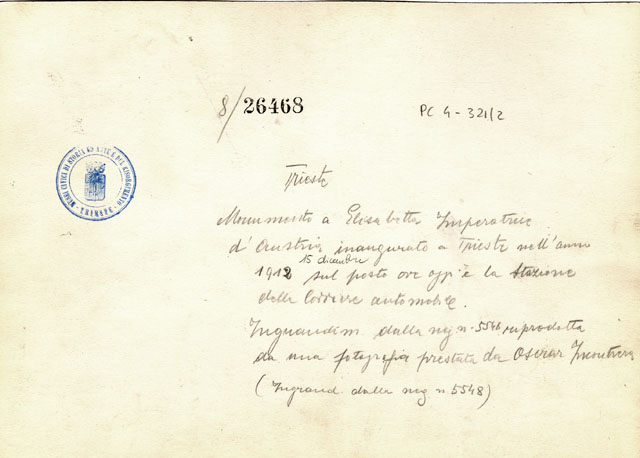 8/26468
PC 4-321/2
MUSEI CIVICI DI STORIA ED ARTE E DEL RISORGIMENTO
TRIESTE
Trieste
Monumento a Elisabetta Imperatrice
d'Austria inaugurato a Trieste nell'anno
15 dicembre
1912 sul posto ove oggi è la Stazione
delle Corriere automobile.
Ingrandim. dalla neg n. 5546 riprodotta
da una fotografia prestata da Oscrar
(Ingrand. dalla neg n. 5548)